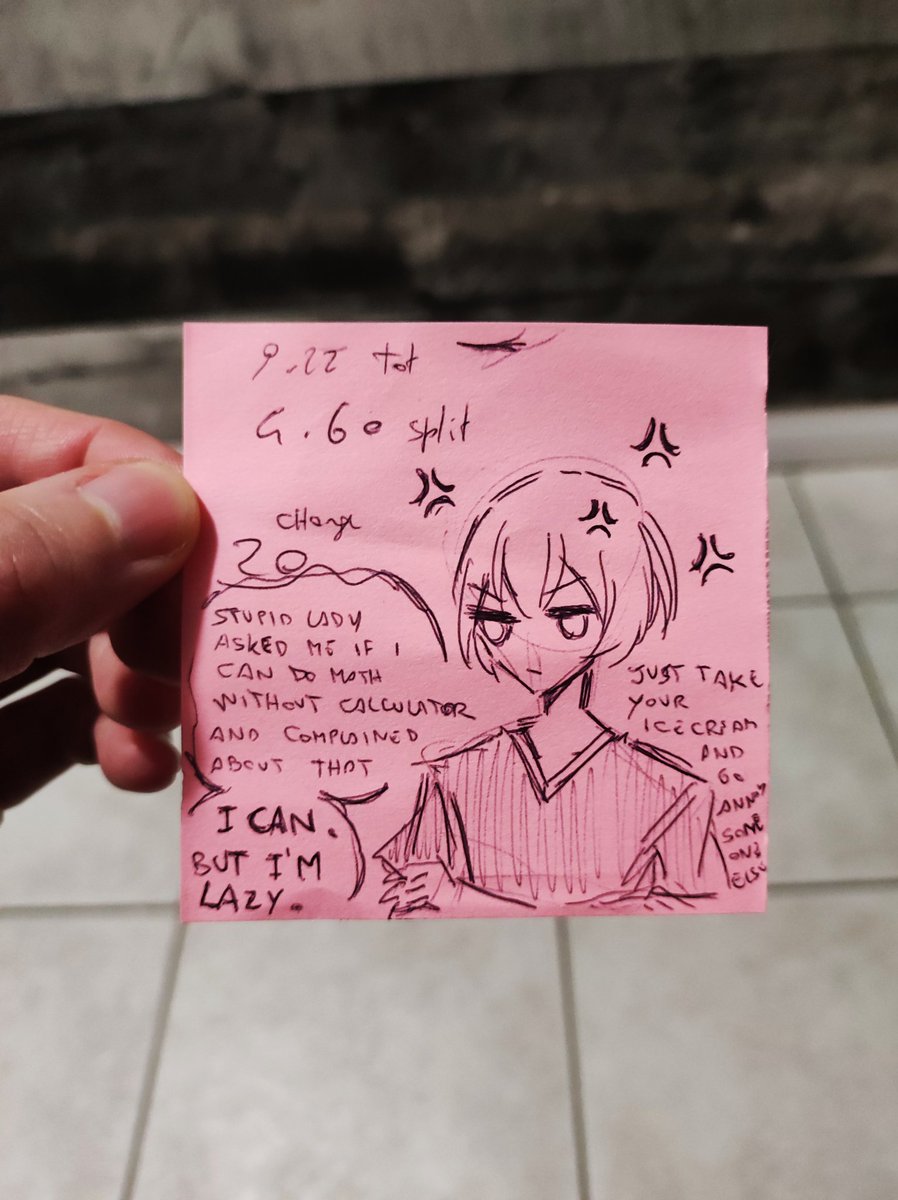 tot
G.60 split
change
20
STUPID LADY
ASKED ME IF I
CAN DO MATH
WITHOUT CALCULATOR
AND COMPLAINED
ABOUT THAT
I CAN.
BUT I'M
LAZY.
JUST TAKE
YOUR
ICECREAM
AND
GO
ANNOY
SOME
ONE
ELSE